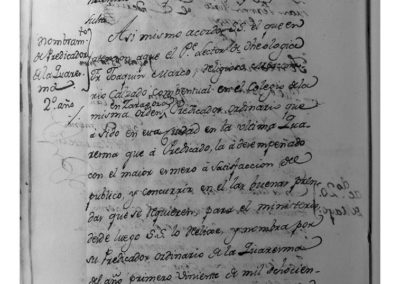 Nombram.to
de Predicador
de la Quares
ma
2.º año
Asi mismo acordò S.S. el que en
atencion aque el P.e Lector de Theologia
Fr. Joaquin Marco, Religioso
Calzado Combentual en el Colegio de la
en Zaragoza
misma Orden, Predicador ordinario que
à Sido en esta Ciudad en la ultima Qua
resma que à Predicado, la à desempeñado
con el maior esmero à Satisfaccion del
publico, y concurrir en el las buenas pren
das que se requieren, para el ministerio
desde luego S.S. lo Relixe, y nombra por
su Predicador ordinario de la Quaresma
del año primero viniente de mil ochocien